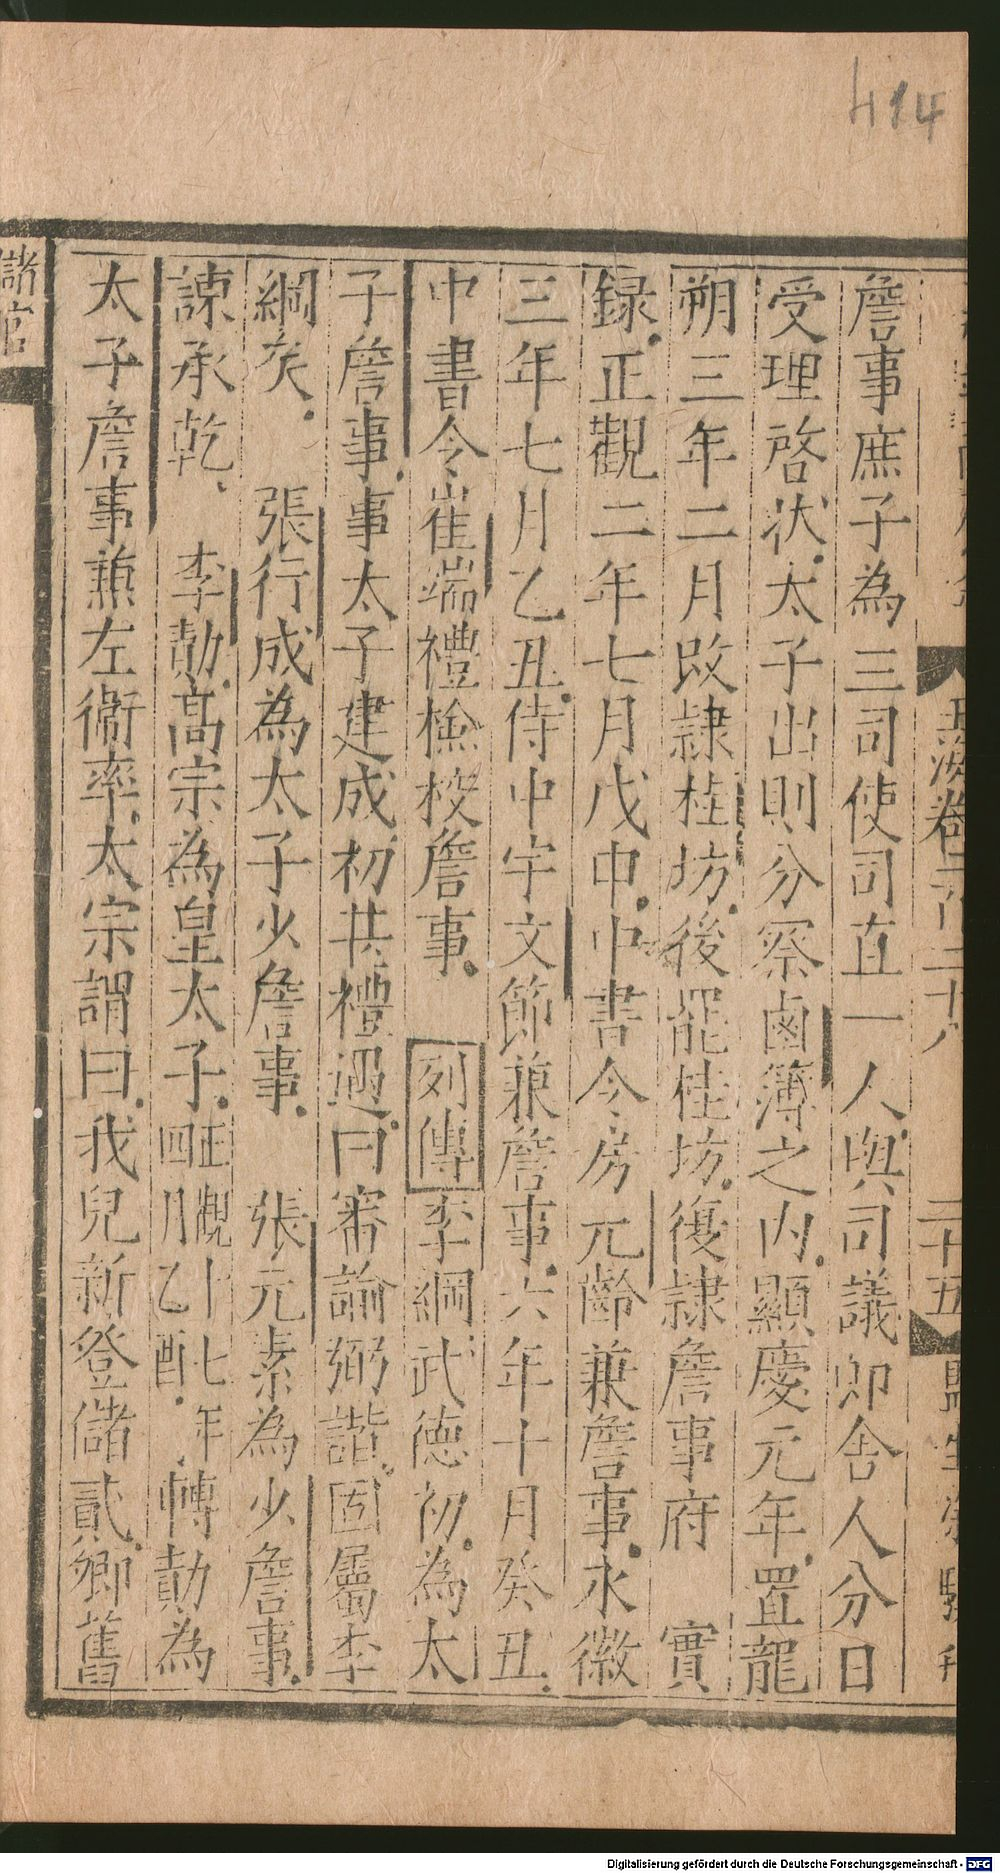 414
玉海卷 二十八 二十五
詹事庶子為三司使司直一人與司議郎舍人分日
受理啓狀太子出則分察鹵簿之內顯慶元年置龍
朔三年二月改隷桂坊後罷桂坊復隷詹事府 實
録正觀二年七月戊申中書令房元齡兼詹事永徽
三年七月乙丑侍中宇文節兼詹事六年十月癸丑
中書令崔端禮檢校詹事 列傳李綱武德初為太
子詹事事太子建成初共禮遇曰審論弼諧固屬李
綱矣 張行成為太子少詹事 張元素為少詹事
諫承乾 李勣高宗為皇太子正觀十七年四月乙酉轉勣為
太子詹事兼左衛率太宗謂曰我兒新登儲貳卿舊
儲官
Digitalisierung gefördert durch die Deutsche Forschungsgemeinschaft - DFG